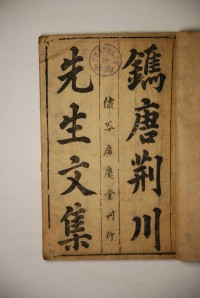 鐫唐荊川
先生文集
繡谷廣慶堂刊行